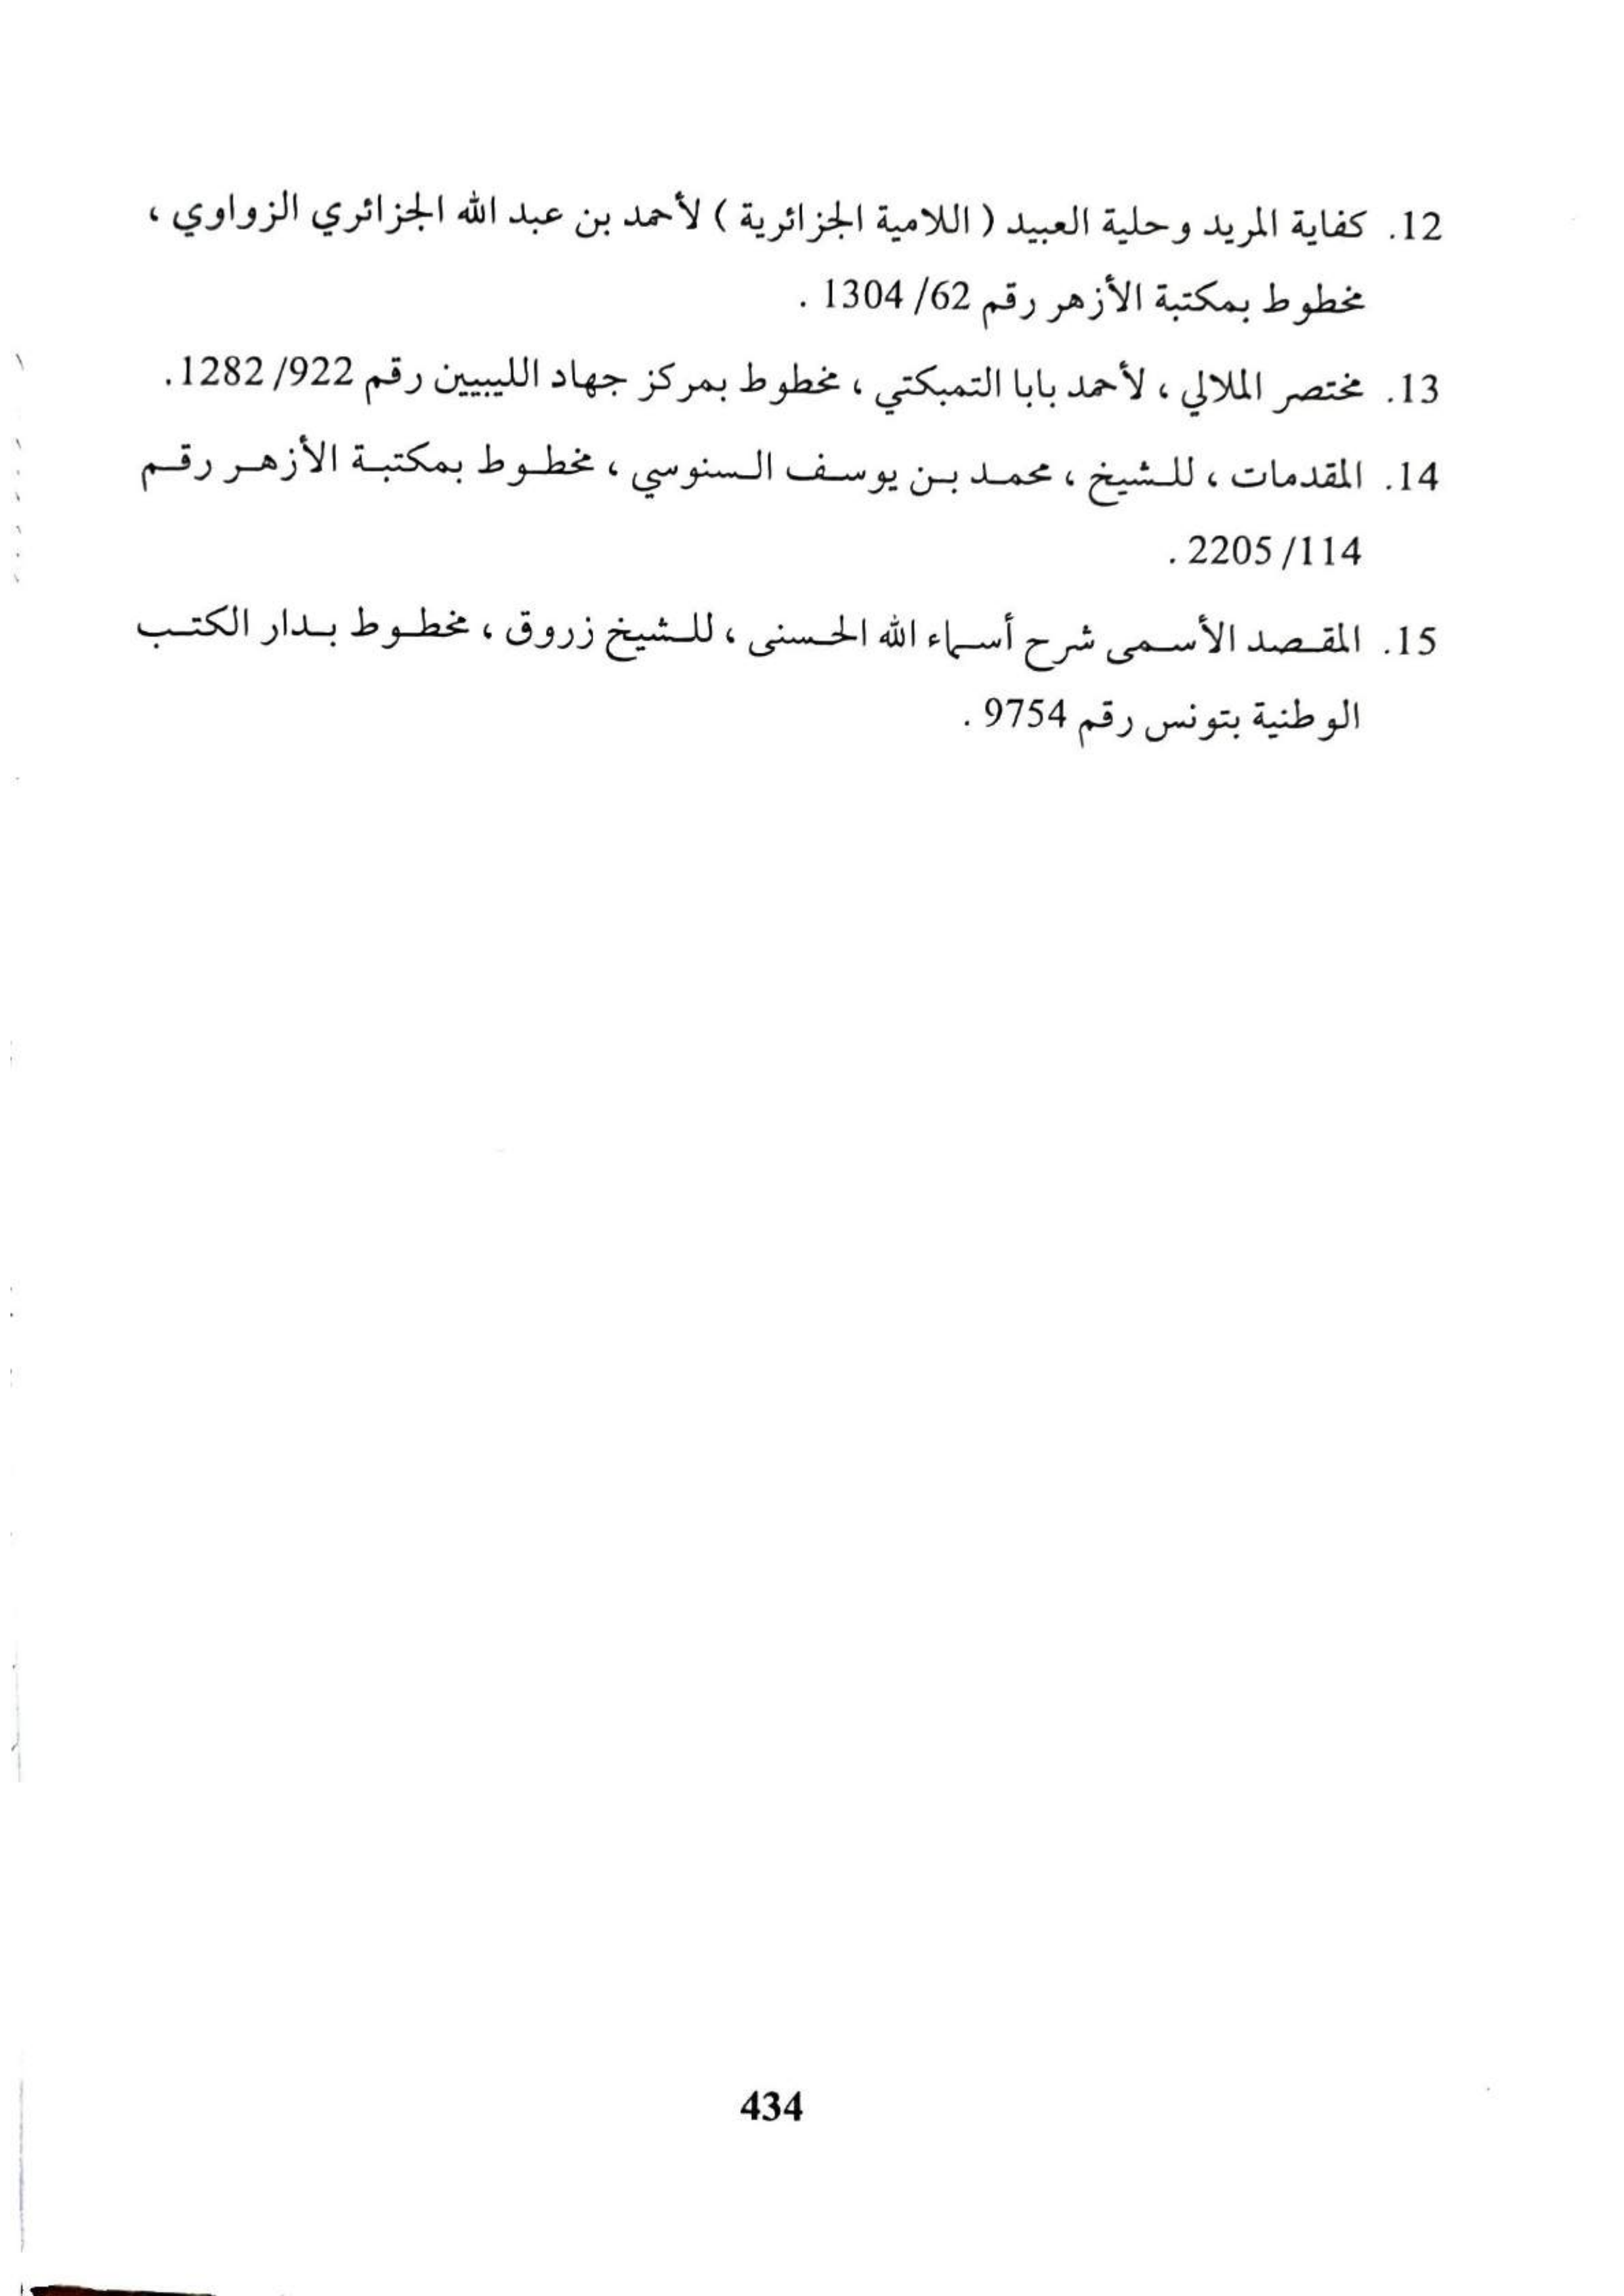 12. كفاية المريد وحلية العبيد ( اللامية الجزائرية ) لأحمد بن عبد الله الجزائري الزواوي ،
مخطوط بمكتبة الأزهر رقم 62/ 1304 .
13. مختصر الملالي ، لأحمد بابا التمبكتي ، مخطوط بمركز جهاد الليبيين رقم 922/ 1282 .
14. المقدمات ، للشيخ ، محمد بن يوسف السنوسي ، مخطوط بمكتبة الأزهر رقم
114/ 2205 .
15. المقصد الأسمى شرح أسماء الله الحسنى ، للشيخ زروق ، مخطوط بدار الكتب
الوطنية بتونس رقم 9754 .
434